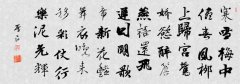 寒雪梅中
盡春風柳
上歸宮鶯
嬌欲醉簷
燕語還飛
遲日明歌
席新花艷
舞衣晚來
移綵仗行
樂泥光輝